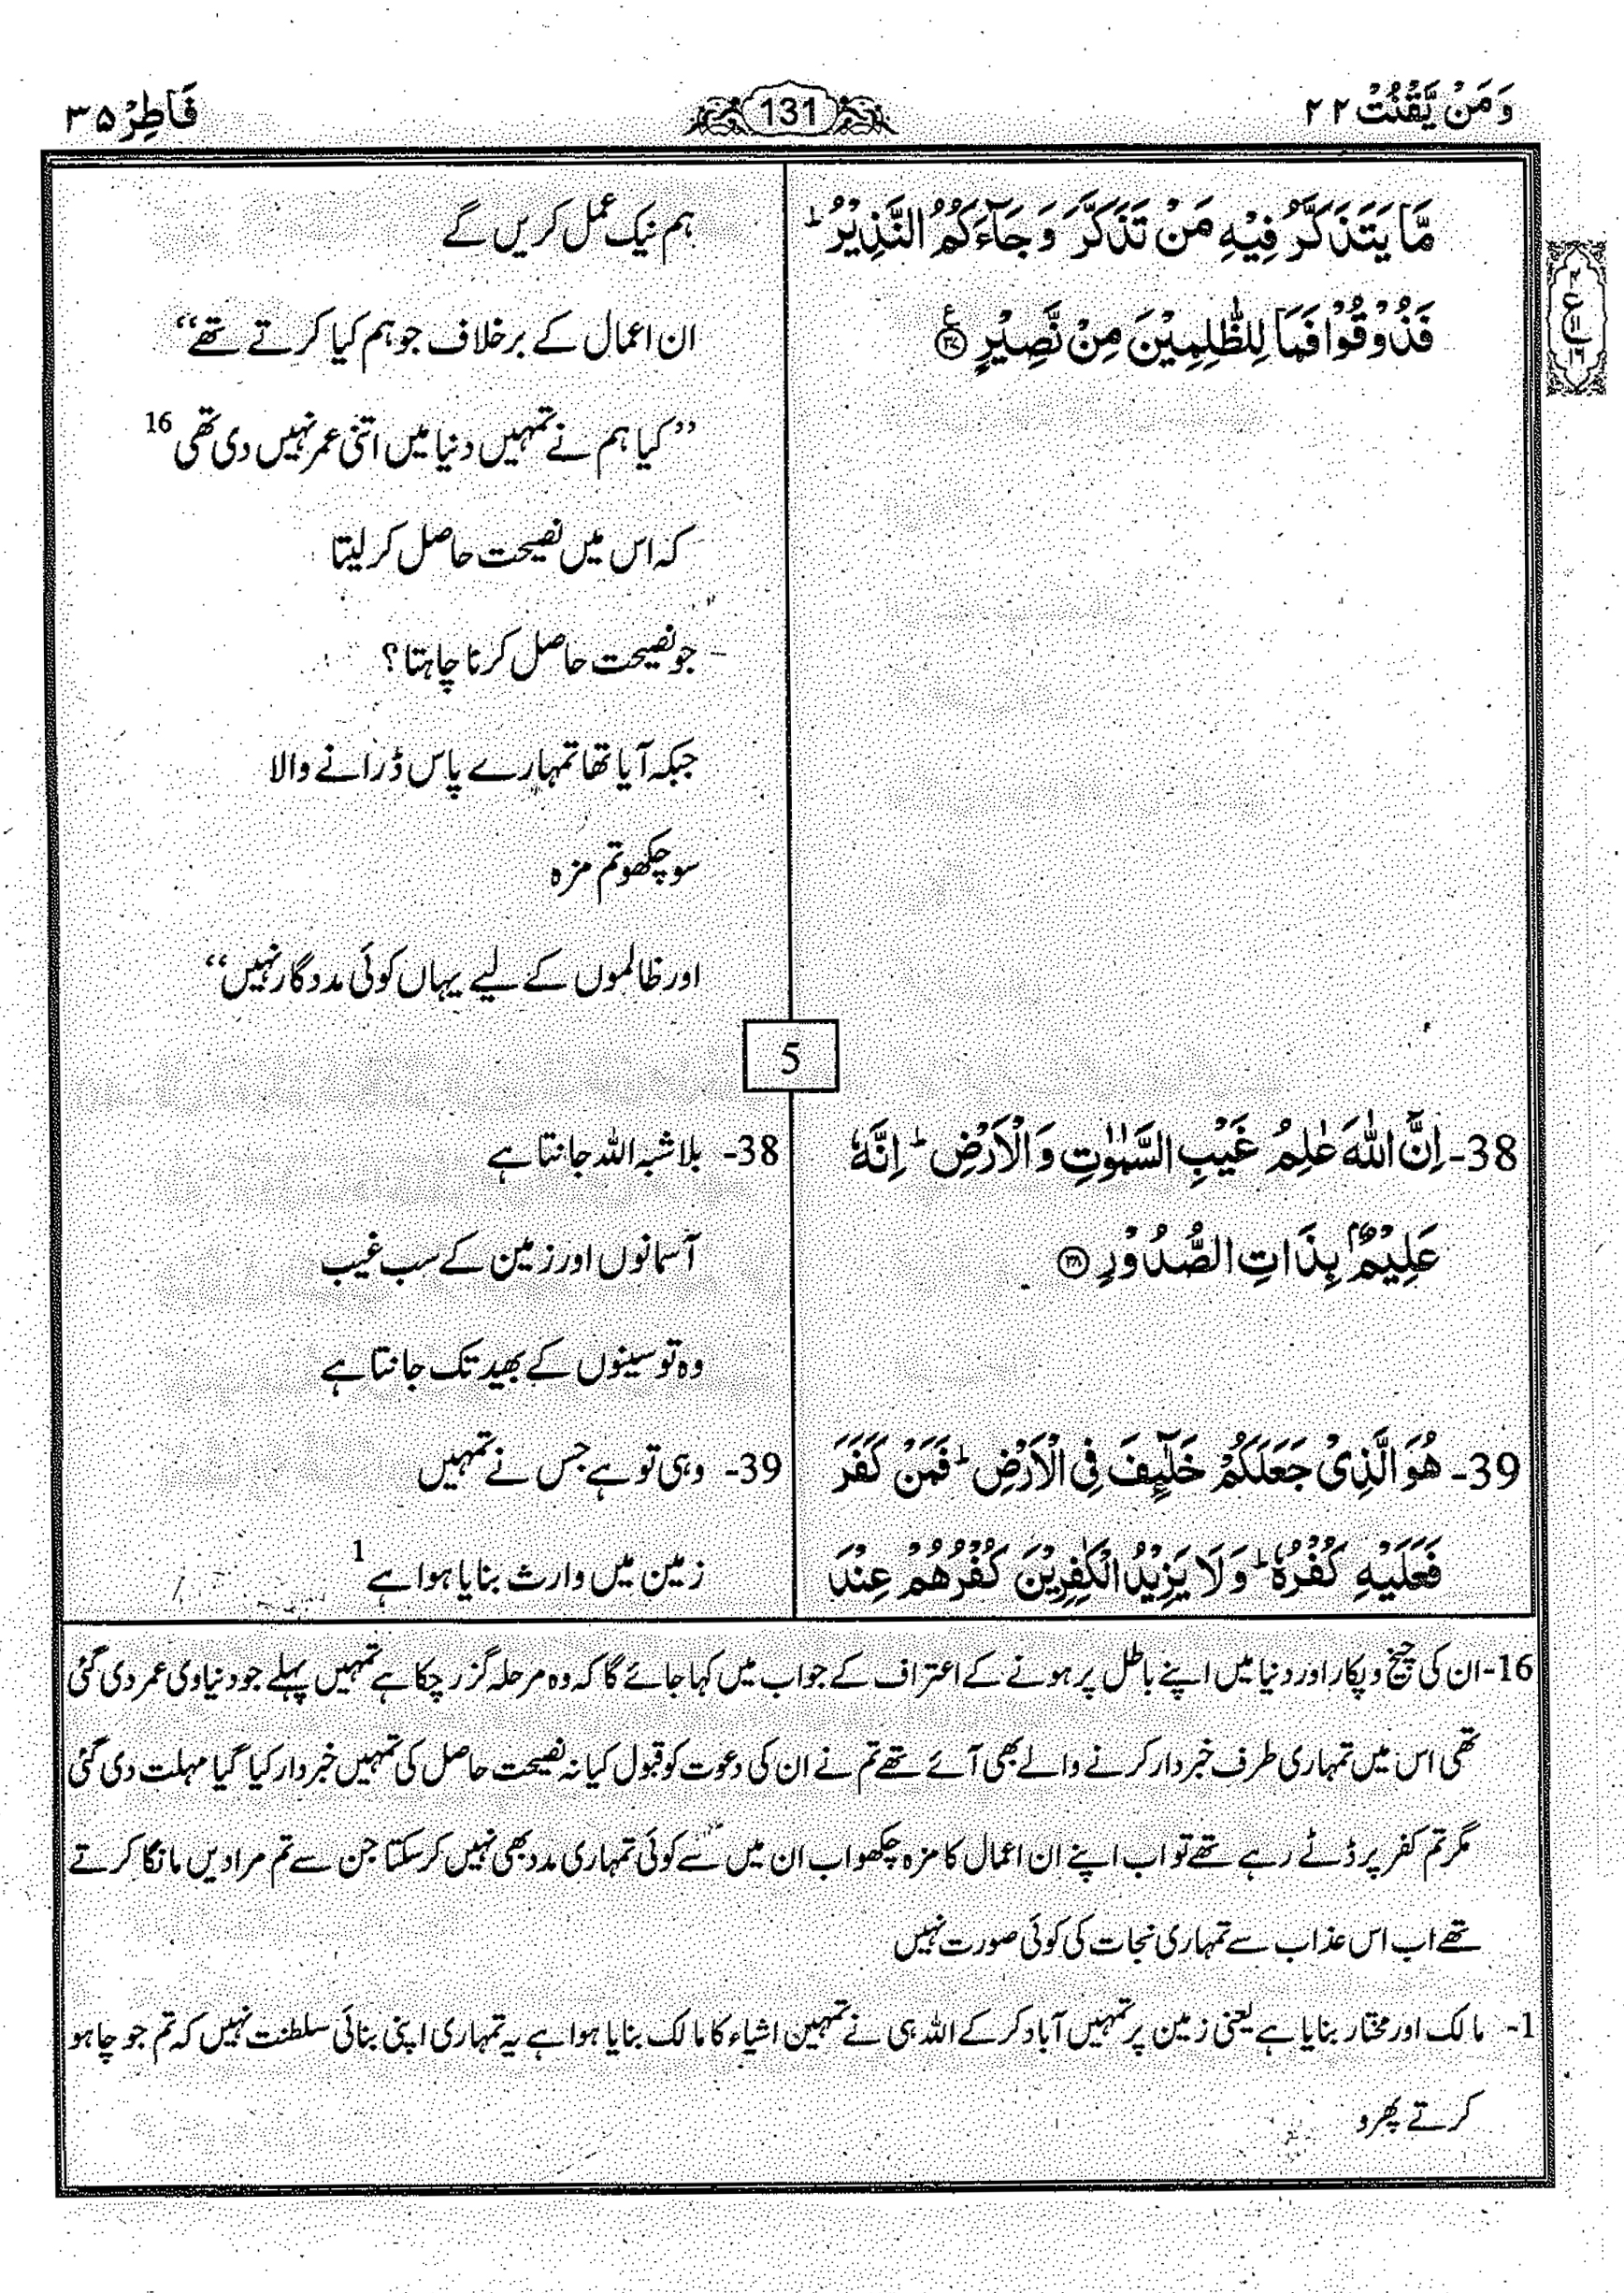 وَمَنْ يَّقْنُتْ ۲۲
131
فَاطِرْ ۳۵
مَّا يَتَذَكَّرُ فِيْهِ مَنْ تَذَكَّرَ وَ جَآءَكُمُ النَّذِيْرُ ؕ
فَذُوْقُوْا فَمَا لِلظّٰلِمِيْنَ مِنْ نَّصِيْرٍ ﴿۳۷﴾
ع
۴
ع
۱۱
۱۶
ہم نیک عمل کریں گے
ان اعمال کے برخلاف جو ہم کیا کرتے تھے‘‘
’’کیا ہم نے تمہیں دنیا میں اتنی عمر نہیں دی تھی 16
کہ اس میں نصیحت حاصل کر لیتا
جو نصیحت حاصل کرنا چاہتا؟
جبکہ آیا تھا تمہارے پاس ڈرانے والا
سو چکھو تم مزہ
اور ظالموں کے لیے یہاں کوئی مددگار نہیں‘‘
5
38- اِنَّ اللّٰهَ عٰلِمُ غَيْبِ السَّمٰوٰتِ وَ الْاَرْضِ ؕ اِنَّهٗ
عَلِيْمٌۢ بِذَاتِ الصُّدُوْرِ ﴿۳۸﴾
38- بلاشبہ اللہ جانتا ہے
آسمانوں اور زمین کے سب غیب
وہ تو سینوں کے بھید تک جانتا ہے
39- هُوَ الَّذِيْ جَعَلَكُمْ خَلٰٓئِفَ فِي الْاَرْضِ ؕ فَمَنْ كَفَرَ
فَعَلَيْهِ كُفْرُهٗ ؕ وَ لَا يَزِيْدُ الْكٰفِرِيْنَ كُفْرُهُمْ عِنْدَ
39- وہی تو ہے جس نے تمہیں
زمین میں وارث بنایا ہوا ہے 1
16- ان کی چیخ و پکار اور دنیا میں اپنے باطل پر ہونے کے اعتراف کے جواب میں کہا جائے گا کہ وہ مرحلہ گزر چکا ہے تمہیں پہلے جو دنیاوی عمر دی گئی
تھی اس میں تمہاری طرف خبردار کرنے والے بھی آئے تھے تم نے ان کی دعوت کو قبول کیا نہ نصیحت حاصل کی تمہیں خبردار کیا گیا مہلت دی گئی
مگر تم کفر پر ڈٹے رہے تھے تو اب اپنے ان اعمال کا مزہ چکھو اب ان میں سے کوئی تمہاری مدد بھی نہیں کر سکتا جن سے تم مرادیں مانگا کرتے
تھے اب اس عذاب سے تمہاری نجات کی کوئی صورت نہیں
1- مالک اور مختار بنایا ہے یعنی زمین پر تمہیں آباد کر کے اللہ ہی نے تمہیں اشیاء کا مالک بنایا ہوا ہے یہ تمہاری اپنی بنائی سلطنت نہیں کہ تم جو چاہو
کرتے پھرو